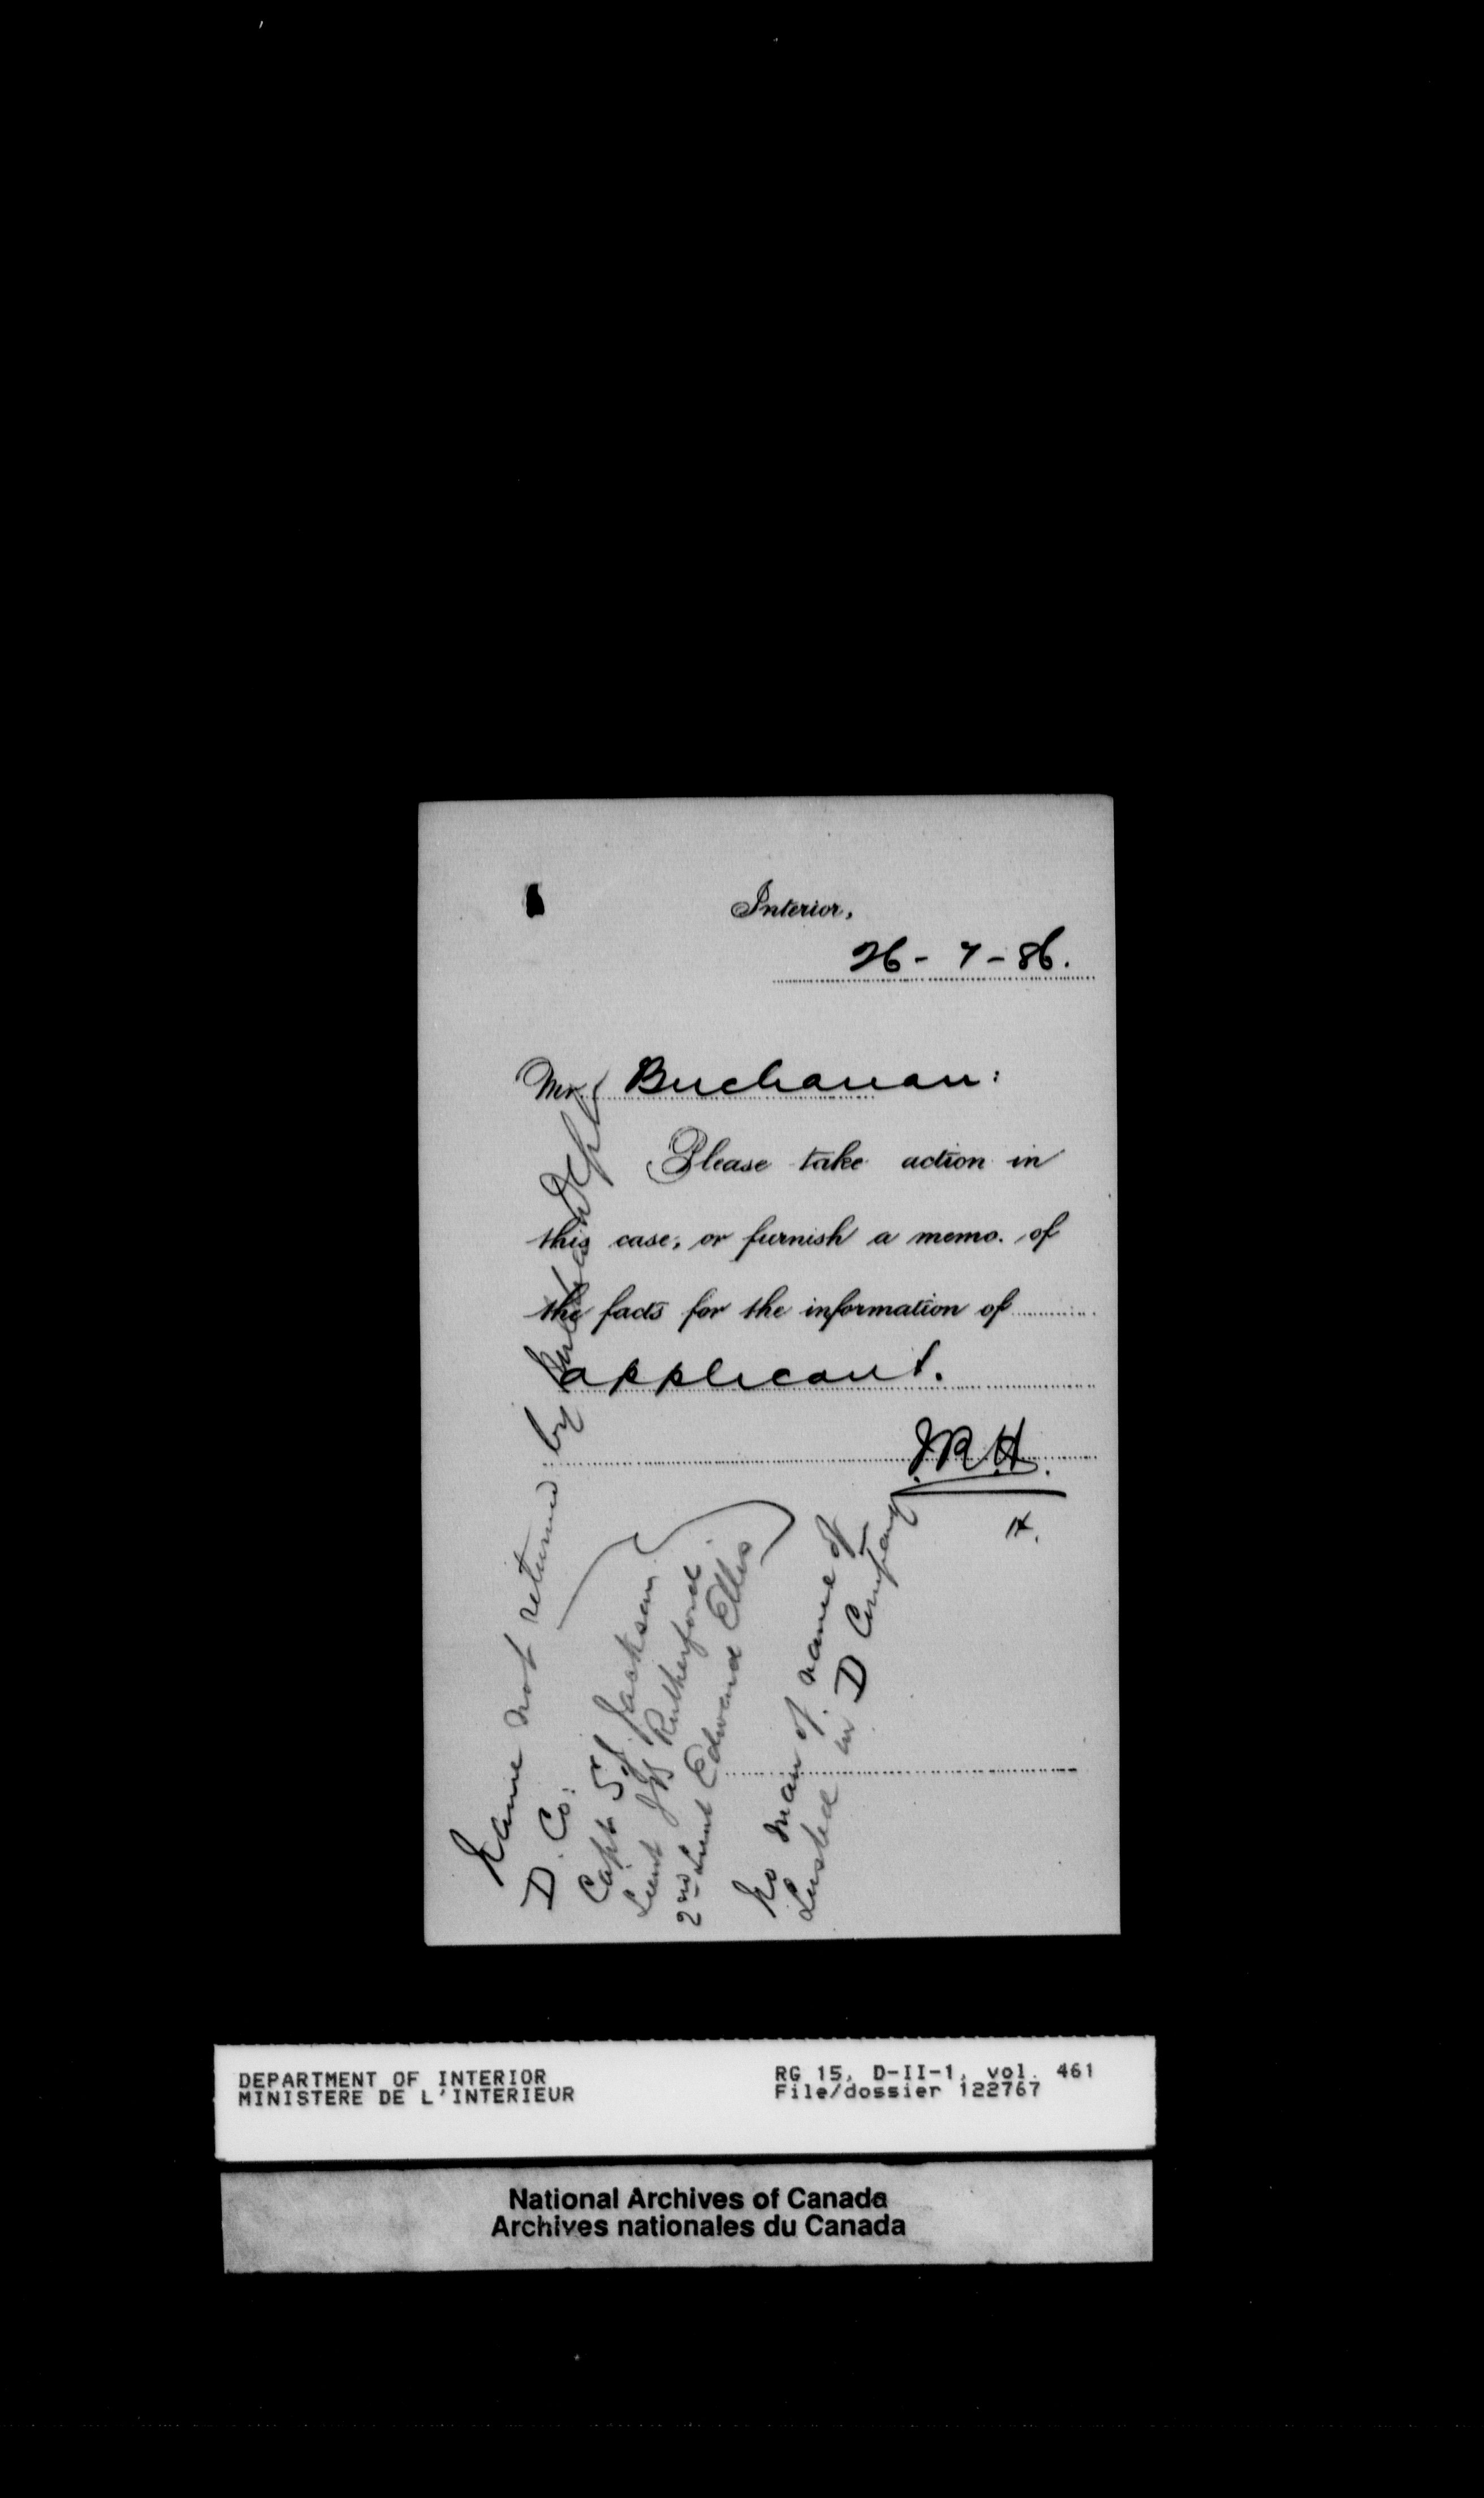 Interior,
26 - 7 - 86.
Mr. Buchanan:
Please take action in
this case, or furnish a memo. of
the facts for the information of
applicant.
J.R.H.
H.
Name not returned by Militia Dept
D. Co:
Capt S. J. Jackson
Lieut Rutherford
2nd Lieut Edward Ellis
No man of name of
Lusted in D Company
DEPARTMENT OF INTERIOR
MINISTERE DE L'INTERIEUR
RG 15, D-II-1, vol. 461
File/dossier 122767
National Archives of Canada
Archives nationales du Canada